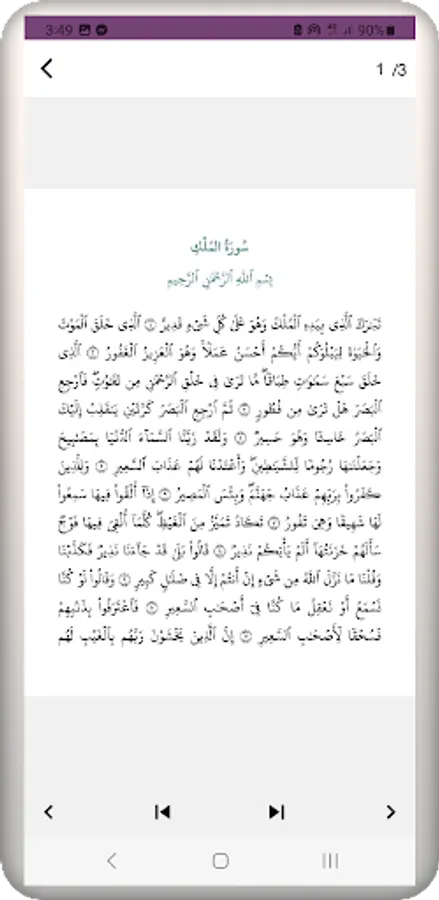 3:49 90%
1 /3
سُورَةُ المُلْكِ
بِسْمِ ٱللَّهِ ٱلرَّحْمَٰنِ ٱلرَّحِيمِ
تَبَٰرَكَ ٱلَّذِى بِيَدِهِ ٱلْمُلْكُ وَهُوَ عَلَىٰ كُلِّ شَىْءٍ قَدِيرٌ ۝ ٱلَّذِى خَلَقَ ٱلْمَوْتَ
وَٱلْحَيَوٰةَ لِيَبْلُوَكُمْ أَيُّكُمْ أَحْسَنُ عَمَلًا ۚ وَهُوَ ٱلْعَزِيزُ ٱلْغَفُورُ ۝ ٱلَّذِى
خَلَقَ سَبْعَ سَمَٰوَٰتٍ طِبَاقًا ۖ مَّا تَرَىٰ فِى خَلْقِ ٱلرَّحْمَٰنِ مِن تَفَٰوُتٍ ۖ فَٱرْجِعِ
ٱلْبَصَرَ هَلْ تَرَىٰ مِن فُطُورٍ ۝ ثُمَّ ٱرْجِعِ ٱلْبَصَرَ كَرَّتَيْنِ يَنقَلِبْ إِلَيْكَ
ٱلْبَصَرُ خَاسِئًا وَهُوَ حَسِيرٌ ۝ وَلَقَدْ زَيَّنَّا ٱلسَّمَآءَ ٱلدُّنْيَا بِمَصَٰبِيحَ
وَجَعَلْنَٰهَا رُجُومًا لِّلشَّيَٰطِينِ ۖ وَأَعْتَدْنَا لَهُمْ عَذَابَ ٱلسَّعِيرِ ۝ وَلِلَّذِينَ
كَفَرُوا۟ بِرَبِّهِمْ عَذَابُ جَهَنَّمَ ۖ وَبِئْسَ ٱلْمَصِيرُ ۝ إِذَآ أُلْقُوا۟ فِيهَا سَمِعُوا۟
لَهَا شَهِيقًا وَهِىَ تَفُورُ ۝ تَكَادُ تَمَيَّزُ مِنَ ٱلْغَيْظِ ۖ كُلَّمَآ أُلْقِىَ فِيهَا فَوْجٌ
سَأَلَهُمْ خَزَنَتُهَآ أَلَمْ يَأْتِكُمْ نَذِيرٌ ۝ قَالُوا۟ بَلَىٰ قَدْ جَآءَنَا نَذِيرٌ فَكَذَّبْنَا
وَقُلْنَا مَا نَزَّلَ ٱللَّهُ مِن شَىْءٍ إِنْ أَنتُمْ إِلَّا فِى ضَلَٰلٍ كَبِيرٍ ۝ وَقَالُوا۟ لَوْ كُنَّا
نَسْمَعُ أَوْ نَعْقِلُ مَا كُنَّا فِىٓ أَصْحَٰبِ ٱلسَّعِيرِ ۝ فَٱعْتَرَفُوا۟ بِذَنۢبِهِمْ
فَسُحْقًا لِّأَصْحَٰبِ ٱلسَّعِيرِ ۝ إِنَّ ٱلَّذِينَ يَخْشَوْنَ رَبَّهُم بِٱلْغَيْبِ لَهُم